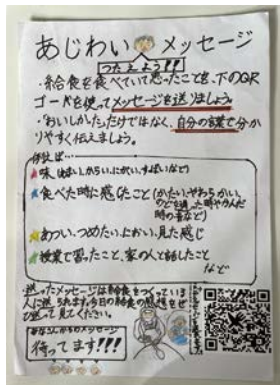 あじわい メッセージ
つたえよう!!
・給食を食べていて思ったことを、下のQR
コードを使ってメッセージを送りましょう
・"おいしかった"だけではなく、自分の言葉で分か
りやすく伝えましょう。
例えば…
味(あまい、からい、にがい、すっぱいなど)
食べた時に感じたこと(かたい、やわらかい、
のどを通った時やかんだ
時の音など)
あつい、つめたい、におい、見た感じ
授業で習ったこと、家の人と話したこと
など
・送ったメッセージは給食をつくっている
人に送られます。今日の給食の感想をぜ
ひ送って見てください。
みなさんからのメッセージ
待ってます!!!